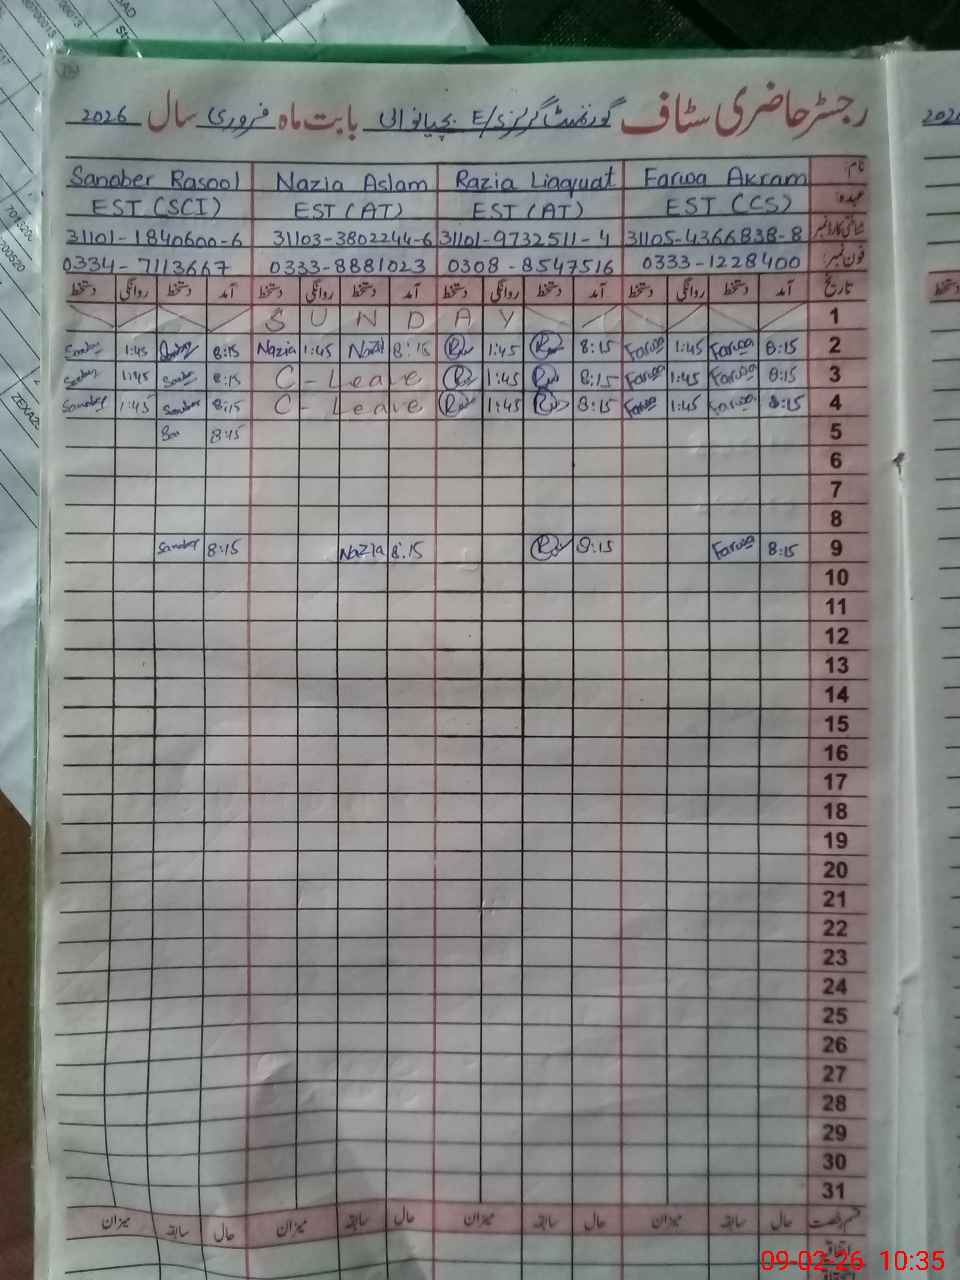 رجسٹر حاضری سٹاف گورنمنٹ گرلز E/S بابت ماہ فروری سال 2026
نام: Farwa Akram Razia Liaquat Nazia Aslam Sanober Rasool
عہدہ: EST (CS) EST (AT) EST (AT) EST (SCI)
شناختی کارڈ نمبر 31105-4366838-8 31101-9732511-4 31103-3802244-6 31101-1840600-6
فون نمبر: 0333-1228400 0308-8547516 0333-8881023 0334-7113667
تاریخ آمد دستخط روانگی دستخط آمد دستخط روانگی دستخط آمد دستخط روانگی دستخط آمد دستخط روانگی دستخط
1 SUNDAY
2 8:15 Farwa 1:45 Farwa 8:15 1:45 8:15 Nazia 1:45 Nazia 8:15 Sanober 1:45 Sanober
3 8:15 Farwa 1:45 Farwa 8:15 1:45 C-Leave 8:15 Sanober 1:45 Sanober
4 8:15 Farwa 1:45 Farwa 8:15 1:45 C-Leave 8:15 Sanober 1:45 Sanober
5 8:15
6
7
8
9 8:15 Farwa 8:15 8:15 Nazia 8:15 Sanober
10
11
12
13
14
15
16
17
18
19
20
21
22
23
24
25
26
27
28
29
30
31
قسم رخصت حال سابقہ میزان حال سابقہ میزان حال سابقہ میزان حال سابقہ میزان
اتفاقیہ
09-02-26 10:35